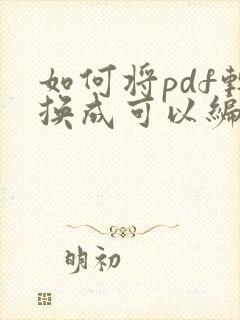 如何将pdf转
换成可以编
明初